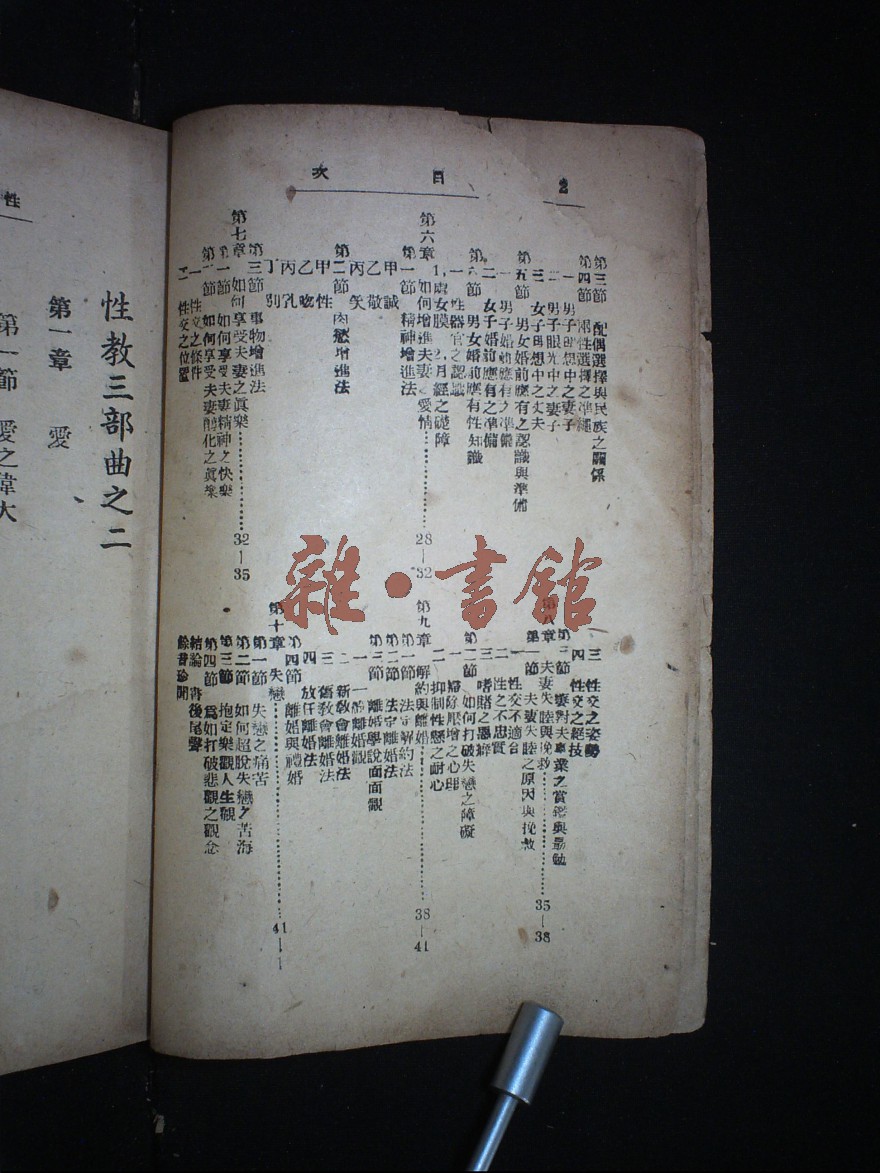 2 目次
第三節 配偶選擇與民族之關係
第四節 兩性選擇之準繩
一 男子理想中之妻子
二 男子眼光中之妻子
三 女子理想中之丈夫
第五節 男女婚前應有之認識與準備
一 男子婚前應有之準備
二 女子婚前應有之準備
第六節 男女婚前應有性知識
一 性器官之認識
1,處女膜 2,月經之礎障
第六章 如何增進夫妻之愛情 28—32
第一節 精神增進法
甲 誠
乙 敬
丙 矢
第二節 肉慾增進法
甲 性
乙 吻
丙 乳
丁 別
第三節 事物增進法
第七章 如何享受夫妻之眞樂 32—35
第一節 如何享受夫妻精神之快樂
第二節 如何享受夫妻醇化之眞樂
一 性交之條件
二 性交之位置
三 性交之姿勢
四 性交之絕技
第三節 妻對夫事業之賞鑑與勗勉
第八章 夫妻失睦與挽救 35—38
第一節 夫妻失睦之原因與挽救
一 性交不適合
二 性之不忠實
三 嗜賭之惡癖
第二節 如何打破失戀之障礙
一 掃除厭增之心理
二 抑制性慾之耐心
第九章 解約與離婚 38—41
第一節 法定解約法
第二節 法定離婚法
第三節 離婚學說面面觀
一 一般離婚觀
二 新敎會離婚法
三 舊敎會離婚法
四 放任離婚法
第四節 離婚與禮婚
第十章 失戀 41—
第一節 失戀之痛苦
第二節 如何超脫失戀之苦海
第三節 抱定樂觀人生觀
第四節 爲如打破悲觀之觀念
結論 書後尾聲
餘香珍聞
性
性教三部曲之二
第一章 愛
第一節 愛之偉大
雜·書館